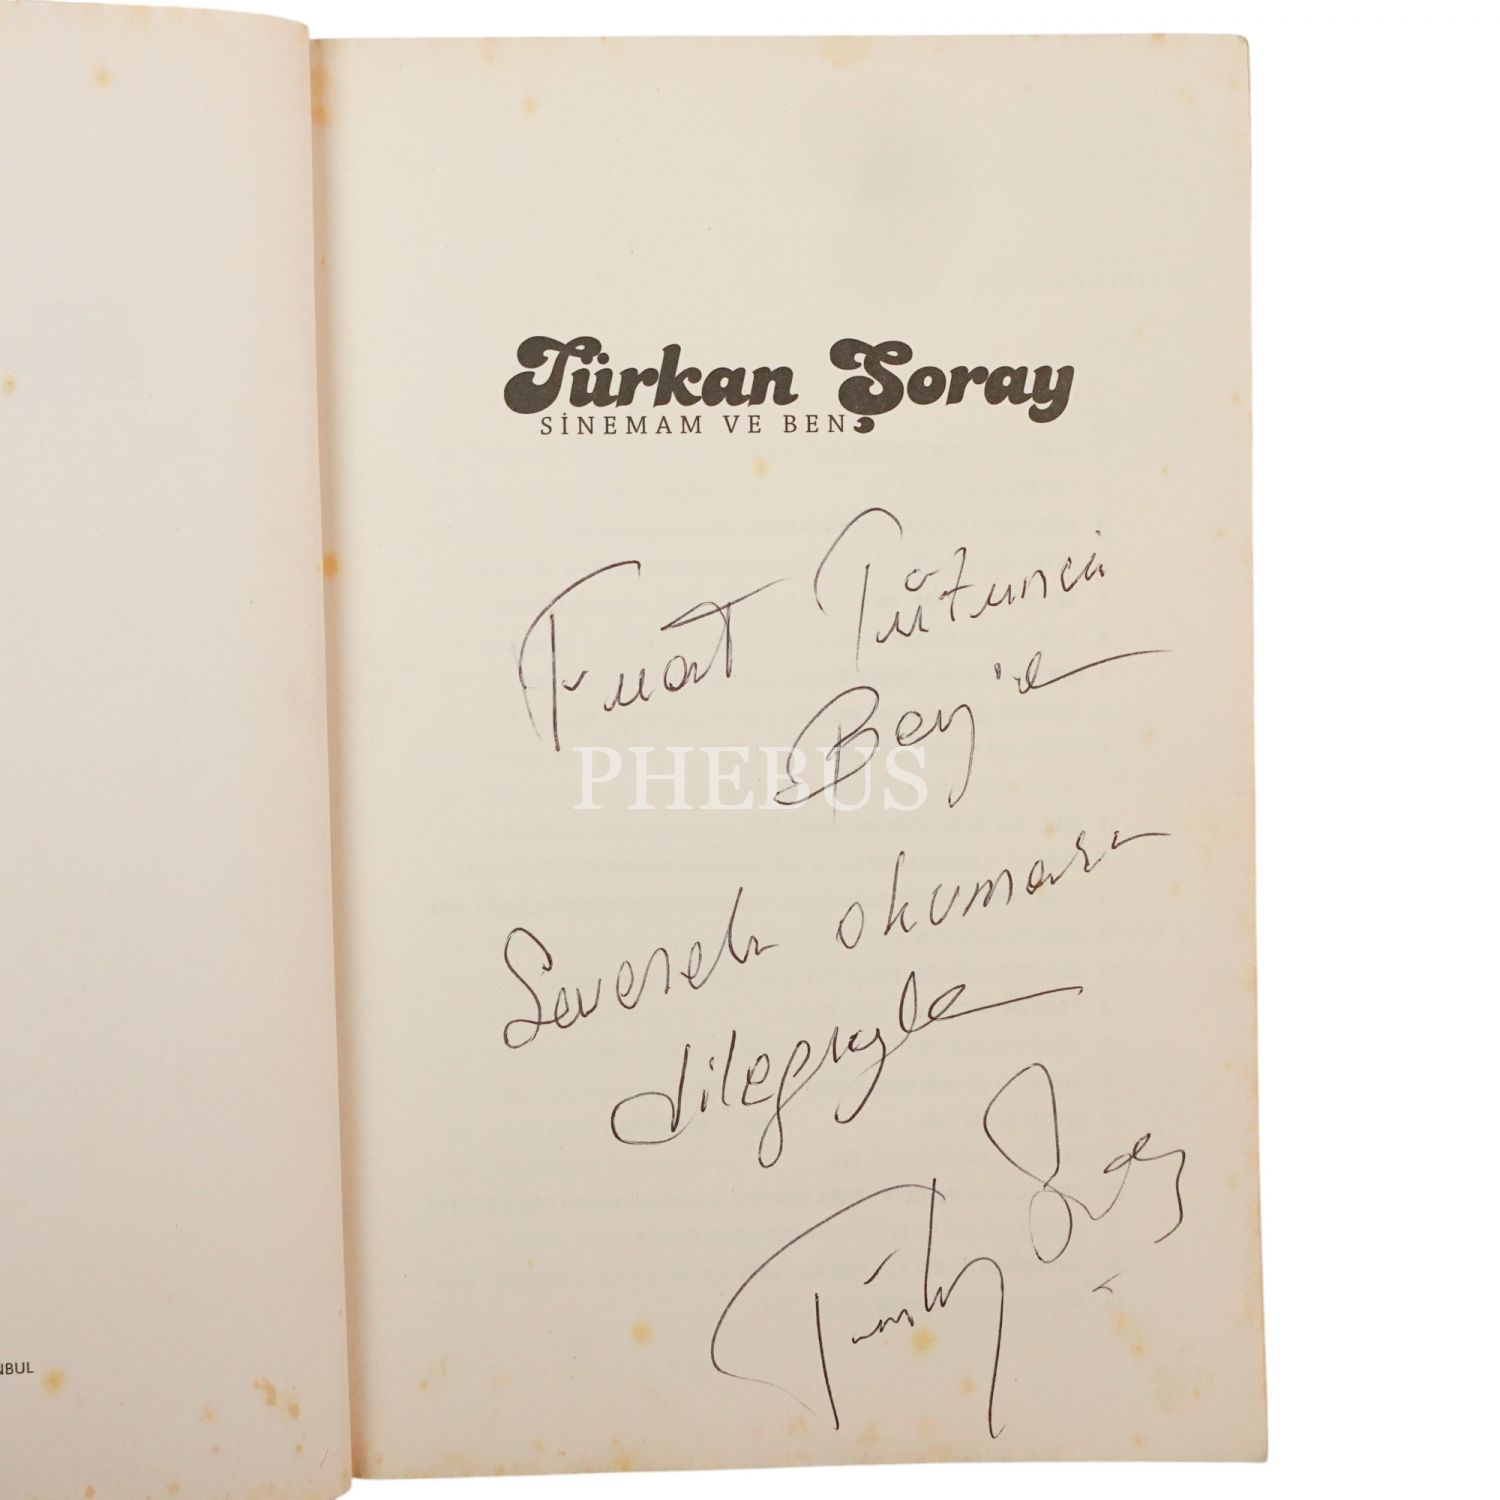 Türkan Şoray
SİNEMAM VE BEN
Fuat Tütüncü
Bey'e
PHEBUS
Severek okumanız
dileğiyle
Türkan Şoray
NBUL